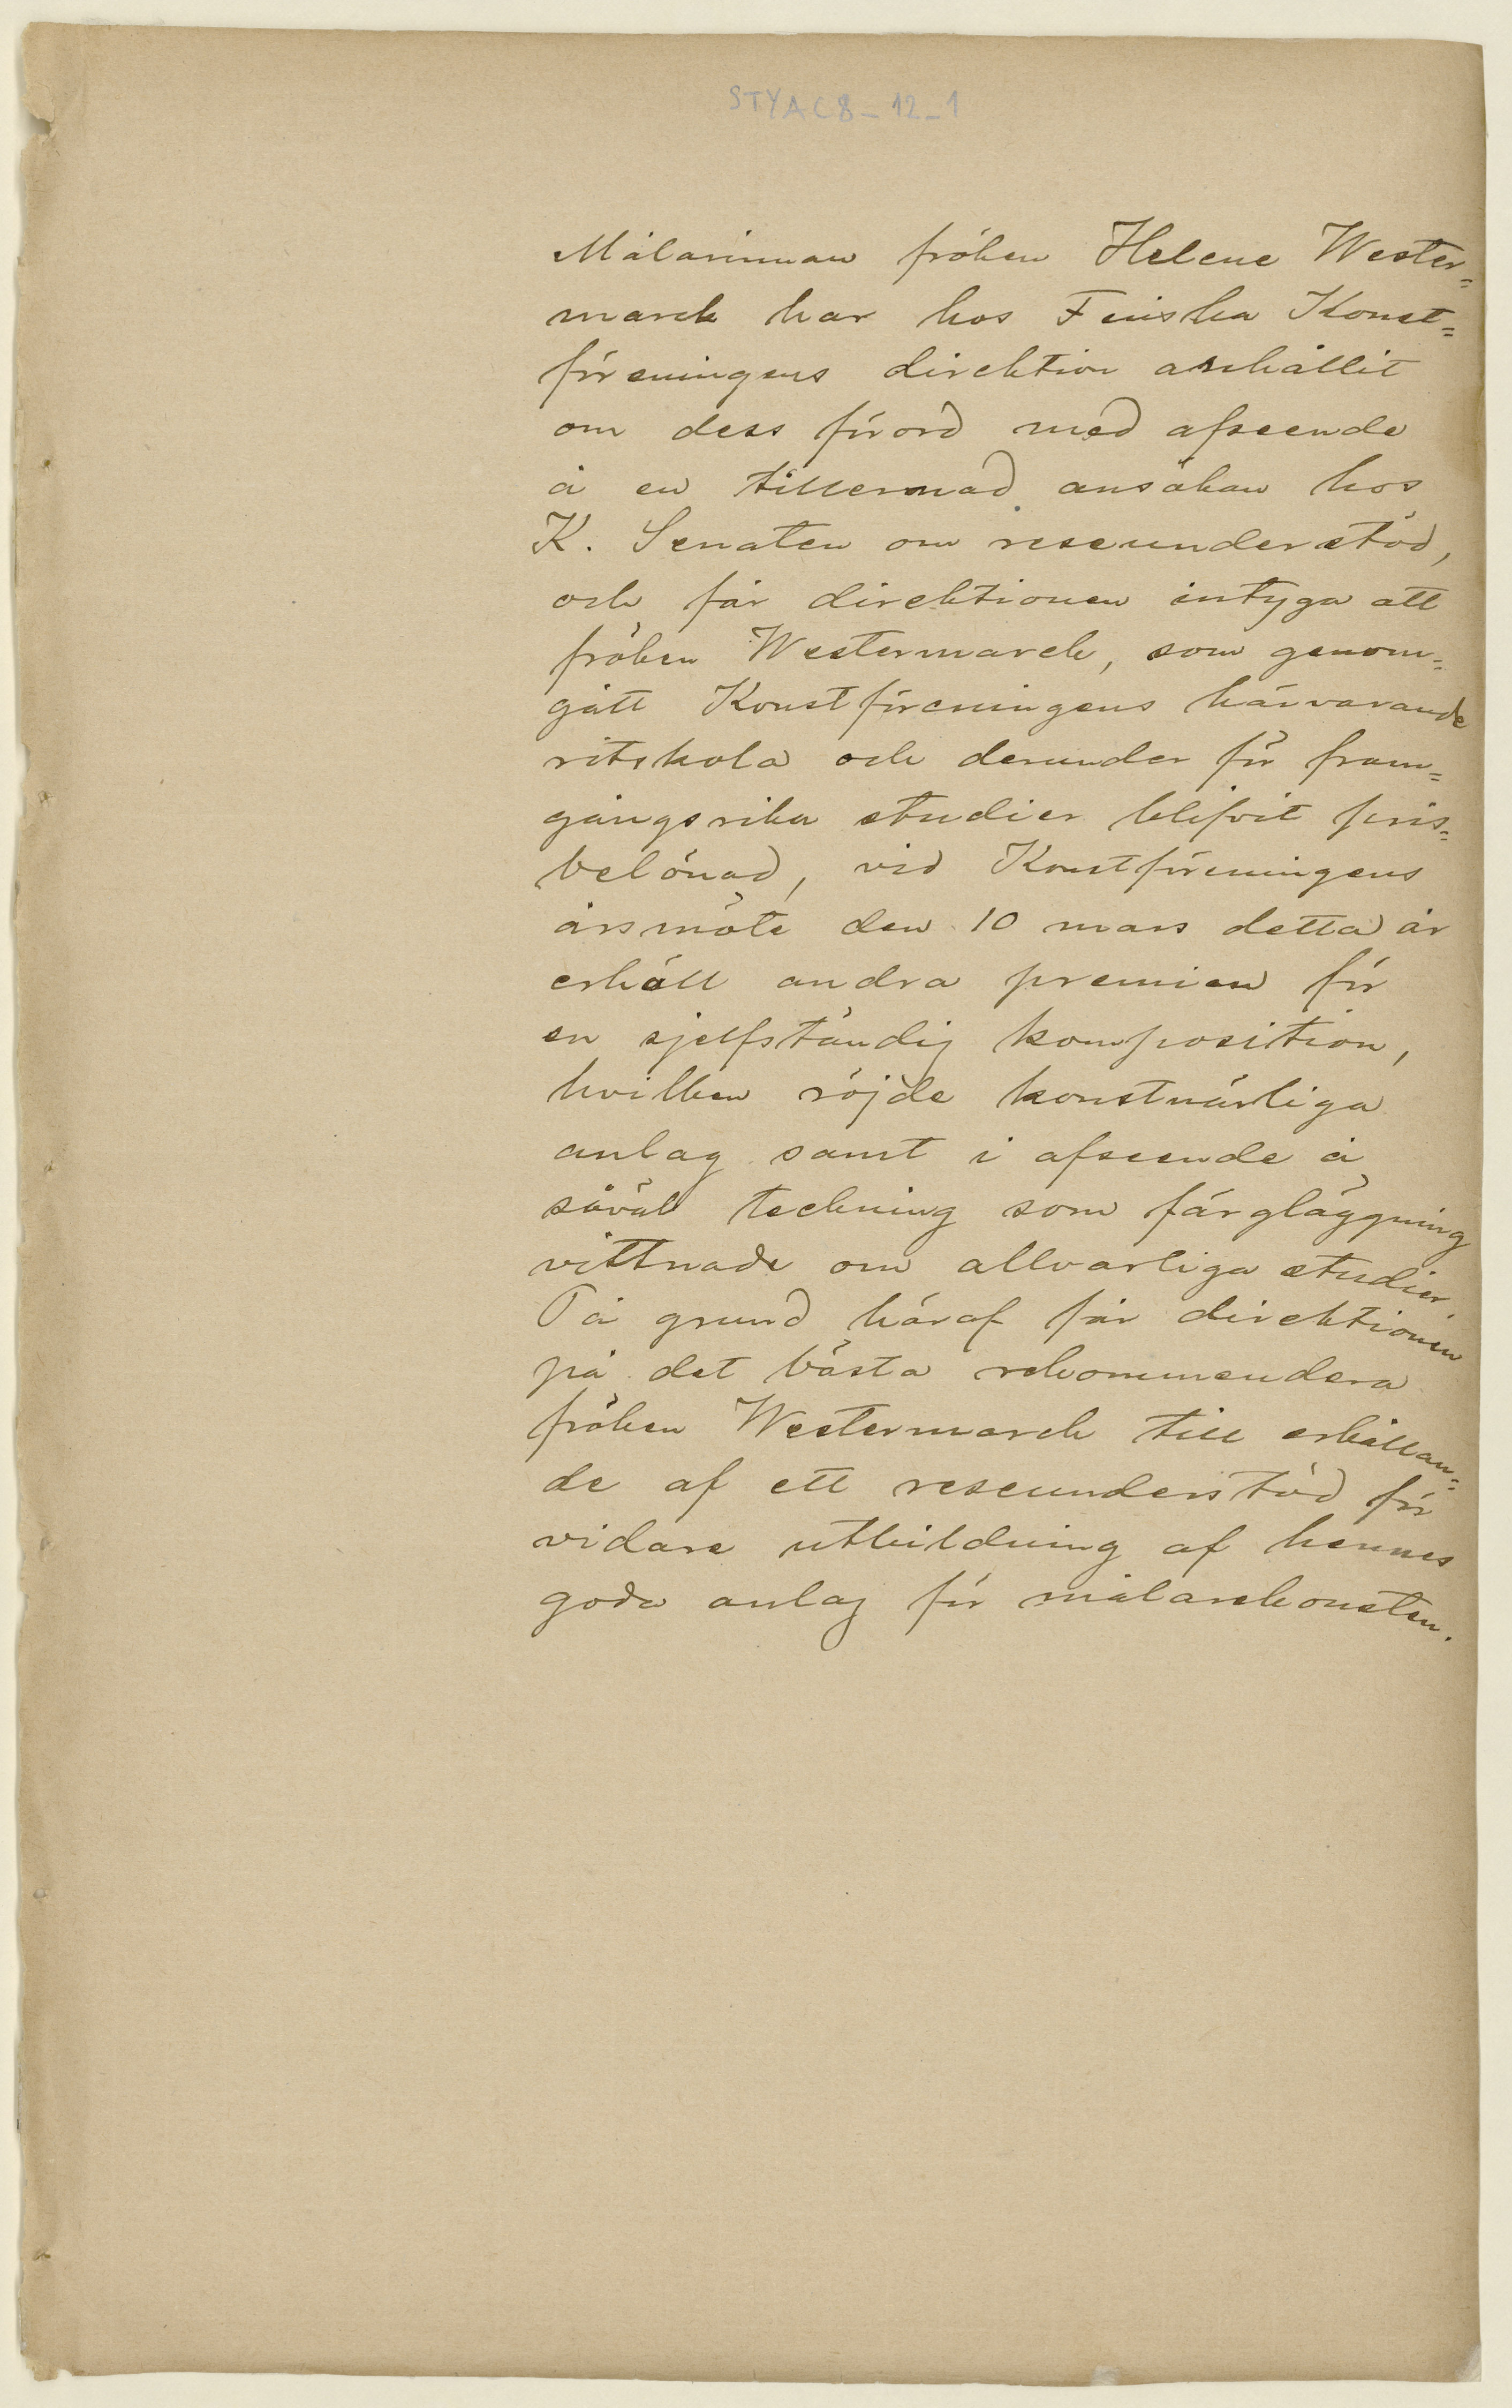 STYAC8_12_1
Målarinnan fröken Helene Wester=
marck har hos Finska Konst=
föreningens direktion anhållit
om dess förord med afseende
å en tillernad ansökan hos
K. Senaten om reseunderstöd,
och får direktionen intyga att
fröken Westermarck, som genom=
gått Konstföreningens härvarande
ritskola och derunder för fram=
gångsrika studier blifvit pris=
belönad, vid Konstföreningens
årsmöte den 10 mars detta år
erhöll andra premien för
en sjelfständig komposition,
hvilken röjde konstnärliga
anlag samt i afseende å
såväl teckning som färgläggning
vittnade om allvarliga studier.
På grund häraf får direktionen
på det bästa rekommendera
fröken Westermarck till erhållan=
de af ett reseunderstöd för
vidare utbildning af hennes
goda anlag för målarekonsten.